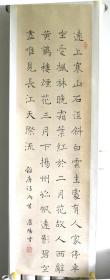 遠上寒山石徑斜白雲生處有人家停車
坐愛楓林晚霜葉紅於二月花故人西辭
黃鶴樓煙花三月下揚州孤帆遠影碧空
盡唯見長江天際流
錄唐詩兩首 書